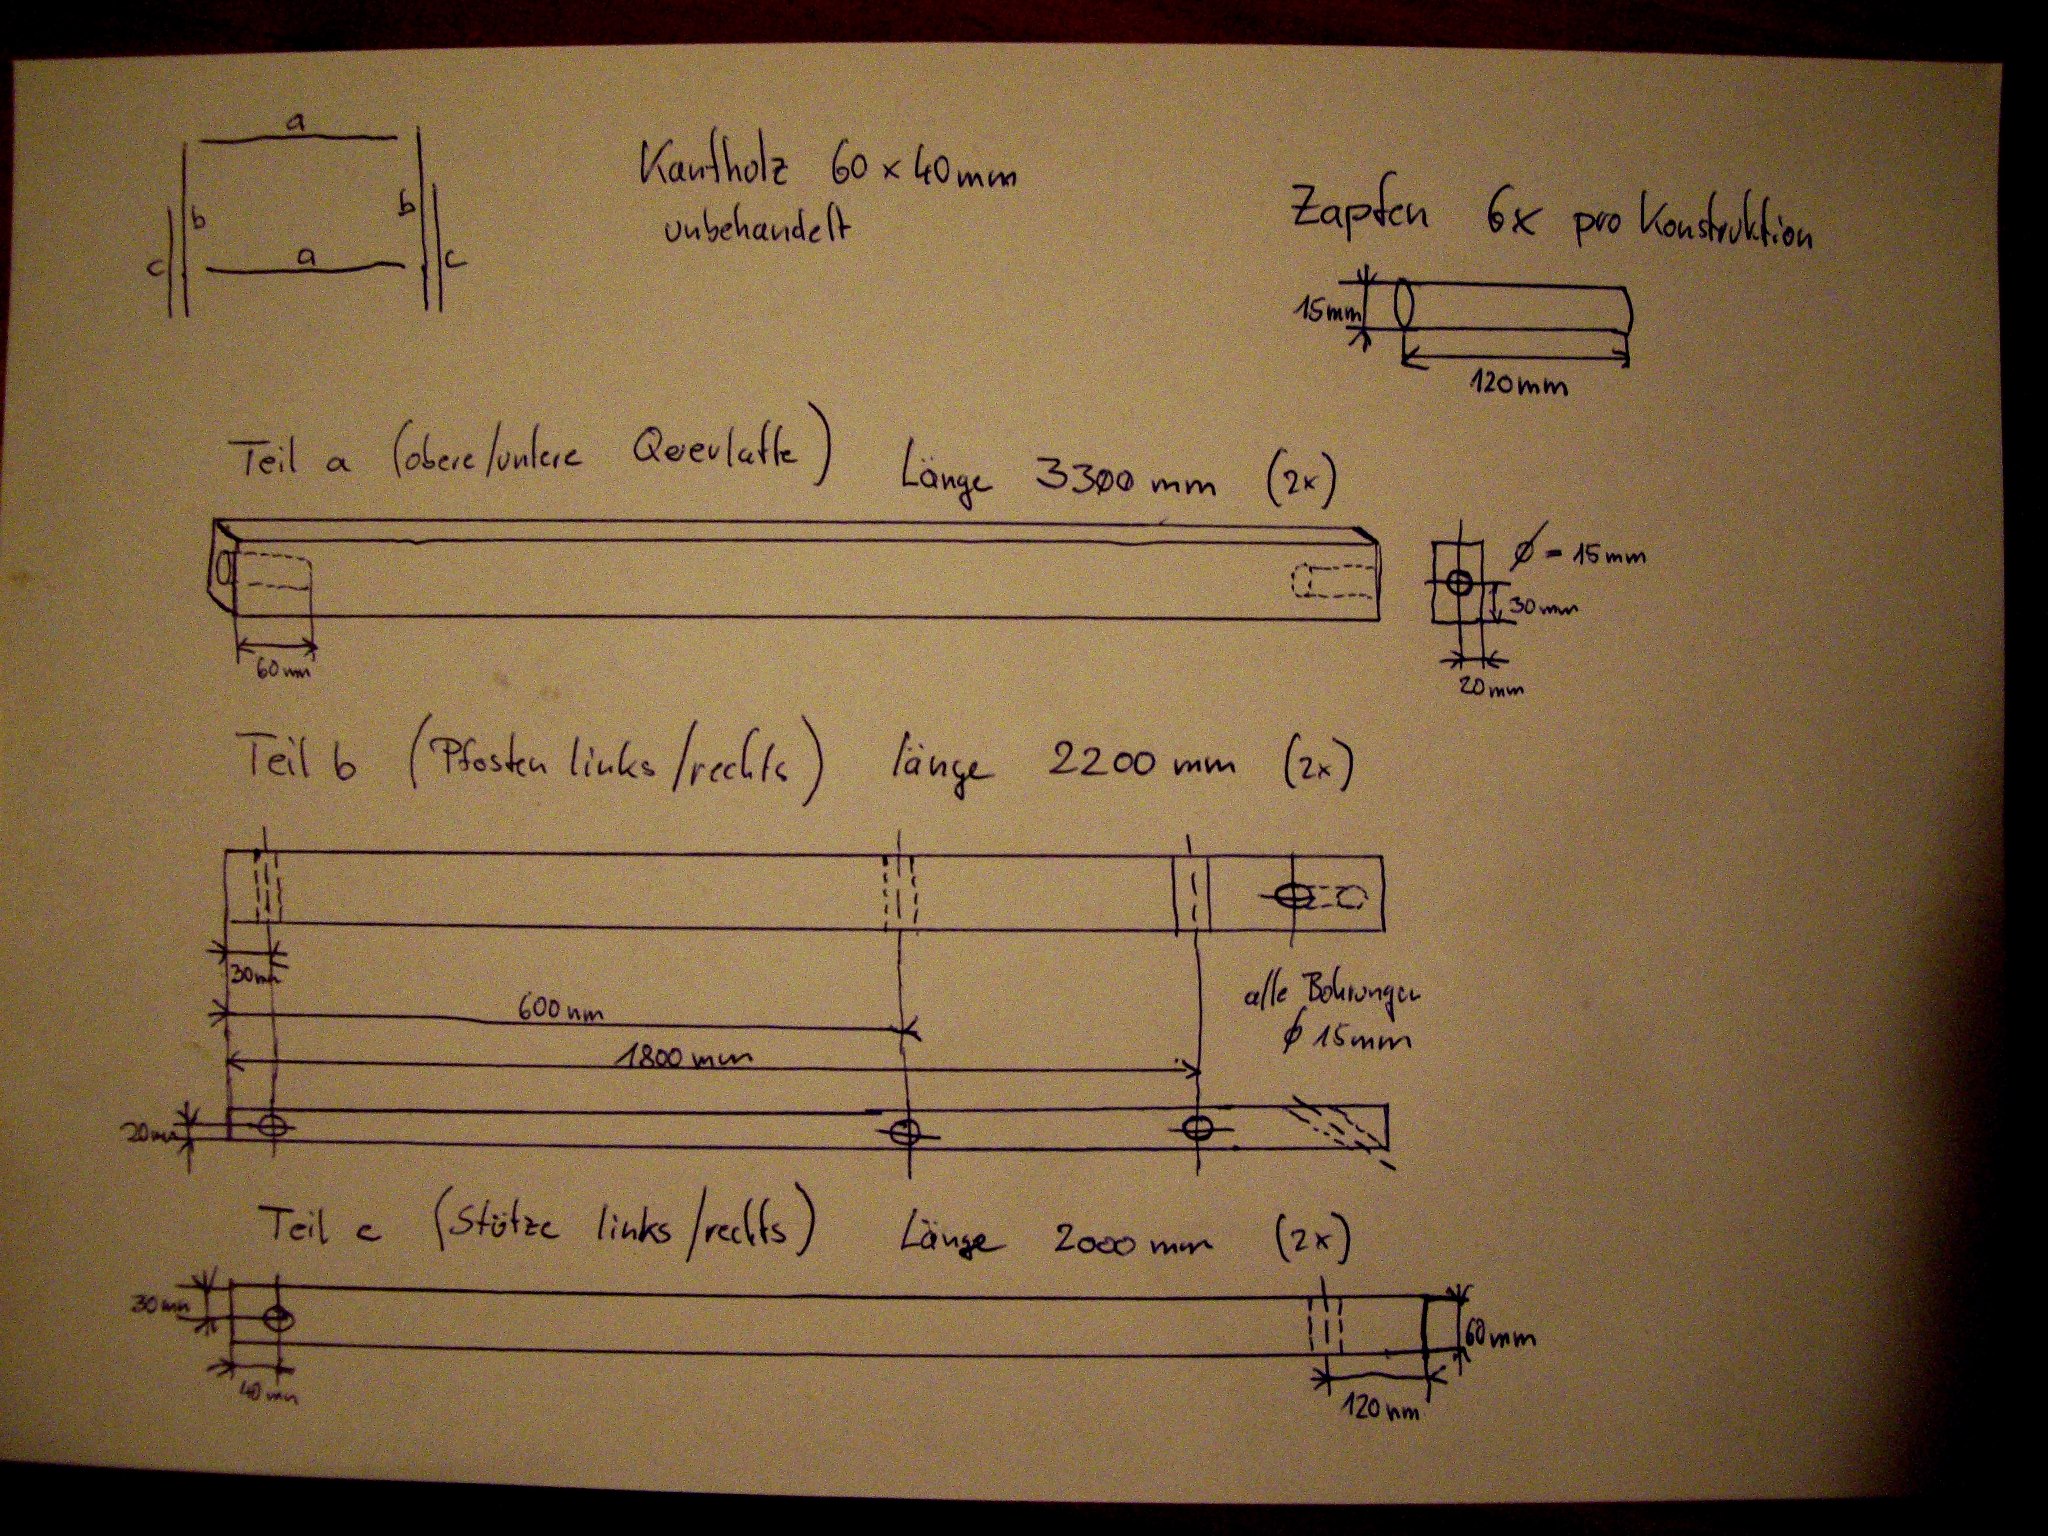 a
b
b
c
a
c
Kantholz 60 x 40mm
unbehandelt
Zapfen 6x pro Konstruktion
15mm
120mm
Teil a (obere/untere Querlatte) Länge 3300 mm (2x)
60mm
Ø = 15mm
30mm
20mm
Teil b (Pfosten links/rechts) länge 2200 mm (2x)
30mm
600mm
1800mm
alle Bohrungen
Ø 15mm
20mm
Teil c (Stütze links/rechts) Länge 2000 mm (2x)
30mm
40mm
60mm
120mm